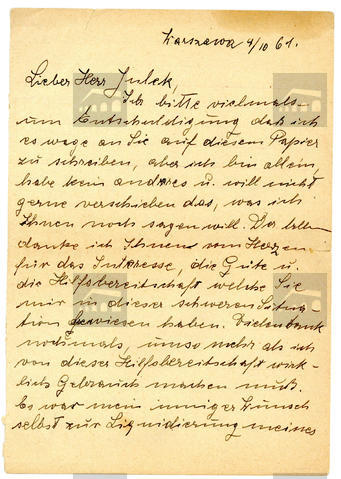 Warszawa 4/10 61.
Lieber Herr Julek,
Ich bitte vielmals
um Entschuldigung daß ich
es wage an Sie auf diesem Papier
zu schreiben, aber ich bin allein,
habe kein anderes u. will nicht
gerne verschieben das, was ich
Ihnen noch sagen will. Vor allem
danke ich Ihnen vom Herzen
für das Interesse, die Güte u.
die Hilfsbereitschaft welche Sie
mir in dieser schweren Situa-
tion bewiesen haben. Vielen Dank
nochmals, umso mehr als ich
von dieser Hilfsbereitschaft wirk-
lich Gebrauch machen muß.
Es war mein inniger Wunsch
selbst zur Liquidierung meines